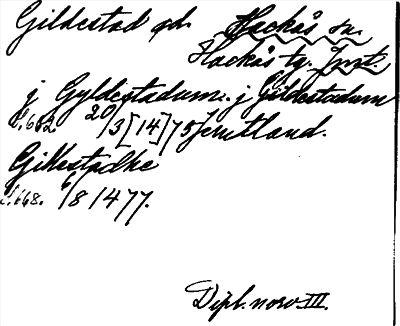 Gildestad gd. Hackås sn.
Hackås tg. Jmtl.
j Gyldestadum. j Gildestadum
s. 662 20/3 [14]75 Jemtland.
Gillestadhe
s. 668. 6/8 1477.
Dipl. norv. III.